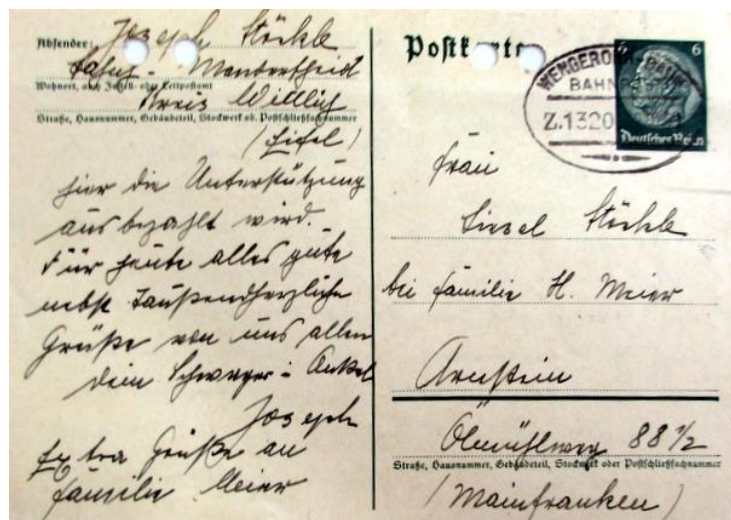 Absender: Joseph Stöckle
Wohnort, auch Zustell- oder Leitpostamt
Kreis Wittlich
Straße, Hausnummer, Gebäudeteil, Stockwerk od. Postschließfachnummer
(Eifel)
hier die Unterstützung
ausbezahlt wird.
Für heute alles gute
nebst Taußendherzliche
Grüße von uns allen
dein Schwager & Onkel
Joseph
Extra Grüße an
Familie Meier
Postkarte
WENGEROHR-
BAHNPOST
Z.1320
6
Deutsches Reich
Frau
Liesel Stöckle
bei Familie H. Meier
Arnstein
Ölmühlweg 88 1/2
Straße, Hausnummer, Gebäudeteil, Stockwerk oder Postschließfachnummer
(Mainfranken)